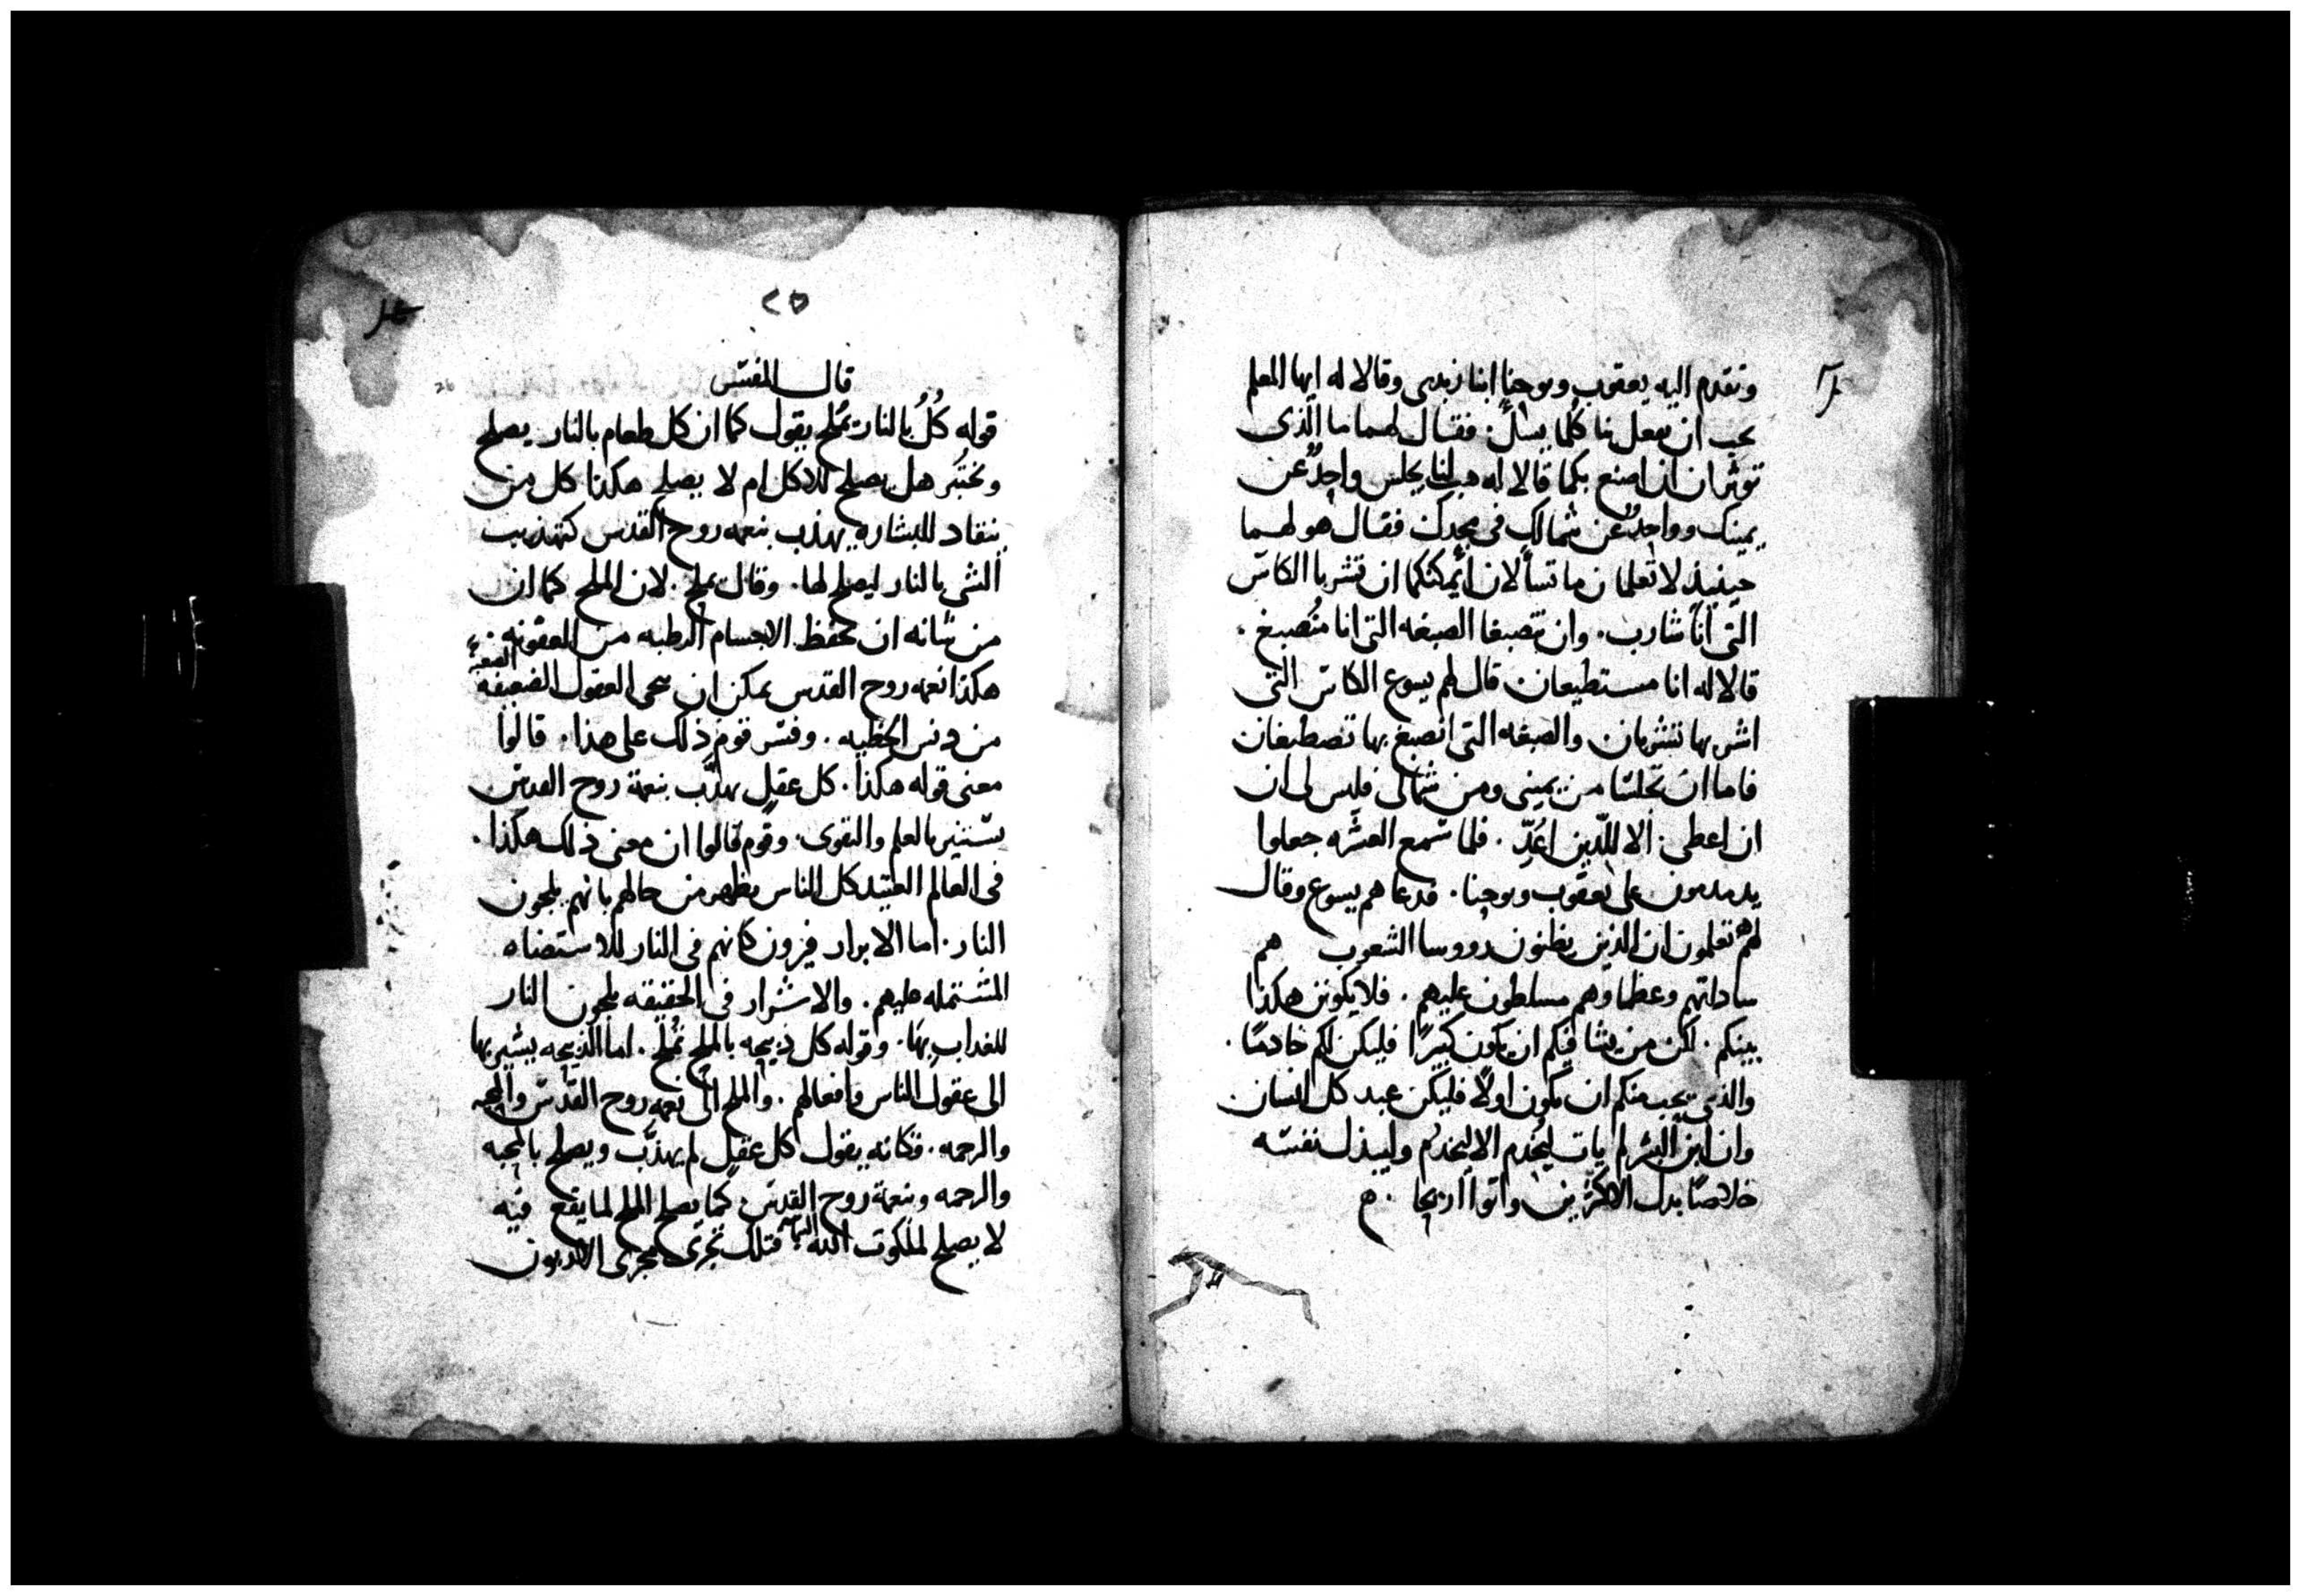 وتقدم اليه يعقوب ويوحنا ابنا زبدى وقالا له ايها المعلم
نحب ان تفعل بنا كلما نسال. فقال لهما ما الذى
توثران ان اصنع بكما قالا له هب لنا يجلس واحدٌ عن
يمينك وواحدٌ عن شمالك فى مجدك فقال هو لهما
حينيذ لا تعلمان ما تسألان أيمكنكما ان تشربا الكاس
التى أنا شارب. وان تصبغا الصبغه التى انا مُنصبغ.
قالا له انا مستطيعان قال لهم يسوع الكاس التى
اشربها تشربان والصبغه التى انصبغ بها تصطبغان
فاما ان تجلسا من يمينى ومن شمالى فليس لى ان
ان اعطى. الا للذين اعُدّ. فلما سمع العشره جعلوا
يدمدمون على يعقوب ويوحنا. فدعاهم يسوع وقال
لهم تعلمون ان الذين يظنون رووسا الشعوب هم
ساداتهم وعظماوهم مسلطون عليهم. فلا يكونن هكذا
بينكم. لكن من يشا فيكم ان يكون كبيرًا فليكن لكم خادمًا.
والذى يحب منكم ان يكون اولاً فليكن عبد كل انسان
وان ابن البشر لم يات ليُخدم الا ليخدم وليبذل نفسه
خلاصًا بدل الاكثرين واتوا اريحا.
٢٥
26
قال المفسّر
قوله كُلُّ بالنار تمُلح يقول كما ان كل طعام بالنار يصلح
وتختبَر هل يصلح للاكل ام لا يصلح هكذا كل من
ينقاد للبشاره يهذب بنعمه روح القدس كتهذيب
الشى بالنار ليصلح لها. وقال يملح. لان الملح كما ان
من شانه ان يحفظ الاجسام الرطبه من العفونه
هكذا نعمه روح القدس يمكن ان تنحى العقول الضعيفه
من دنس الخطيه. وفسّر قوم ذلك على هذا. قالوا
معنى قوله هكذا. كل عقلٍ يهذّب بنعمة روح القدس
يستنير بالعلم والتقوى. وقوم قالوا ان معنى ذلك هكذا.
فى العالم العتيد كل الناس يظهر من حالهم بانهم يلجون
النار. اما الابرار فيرون كانهم فى النار للاستضاه
المشتمله عليهم. والاشرار فى الحقيقه يلجون النار
للعذاب بها. وقوله كل ذبيحه بالملح تُملّح. اما الذبيحه يشير بها
الى عقول الناس وافعالهم. والملح الى نعمه روح القدس والمحبه
والرحمه. فكانه يقول كل عقلٍ لم يهذّب ويصلح بالمحبه
والرحمه وبنعمة روح القدس. كما يصلح الملح لما يقع فيه
لا يصلح لملكوت الله فتلك تجرى مجرى الاتون